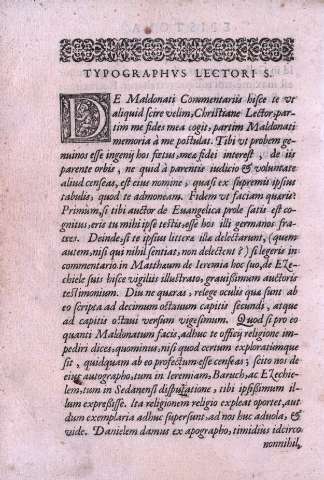 TYPOGRAPHVS LECTORI S.
DE Maldonati Commentariis hisce te vt
aliquid scire velim, Christiane Lector, par-
tim me fides mea cogit, partim Maldonati
memoria à me postulat. Tibi vt probem ge-
nuinos esse ingenij hos fœtus, mea fidei interest, de iis
parente orbis, ne quid à parentis iudicio & voluntate
aliud censeas, est eius nomine, quasi ex supremis ipsius
tabulis, quod te admoneam. Fidem vt faciam quæris?
Primum, si tibi auctor de Euangelica prole satis est co-
gnitus, eris tu mihi ipse testis, esse hos illi germanos fra-
tres. Deinde, si te ipsius litteræ illa delectarunt, (quem
autem, nisi qui nihil sentias, non delectent?) si legeris in
commentario in Matthæum de Ieremia hoc suo, de Eze-
chiele suis hisce vigiliis illustrato, grauissimum auctoris
testimonium. Diu ne quæras, relege oculis quæ sunt ab
eo scripta ad decimum octauum capitis secundi, atque
ad capitis octaui versum vigesimum. Quod si pro eo
quanti Maldonatum facis, adhuc te officij religione im-
pediri dices, quominus, nisi quod certum exploratumque
sit, quidquam ab eo profectum esse censeas; scito nos de
eius autographo, tum in Ieremiam, Baruch, ac Ezechie-
lem, tum in Sedanensi disputatione, tibi ipsissimum il-
lum expressisse. Ita religionem religio expleat oportet, aut
dum exemplaria adhuc supersunt, ad nos huc aduola, &
vide. Danielem damus ex apographo, timidius idcirco
nonnihil,